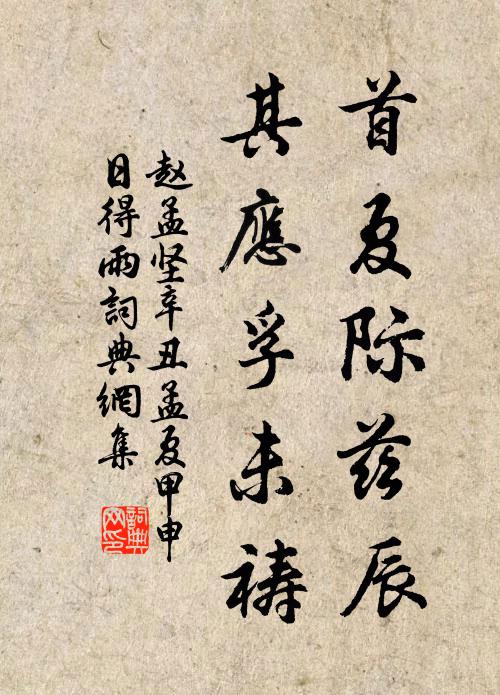 首夏际兹辰
其應孚未祷
赵孟坚辛丑孟夏甲申
日得雨詞典網集
詞典网印